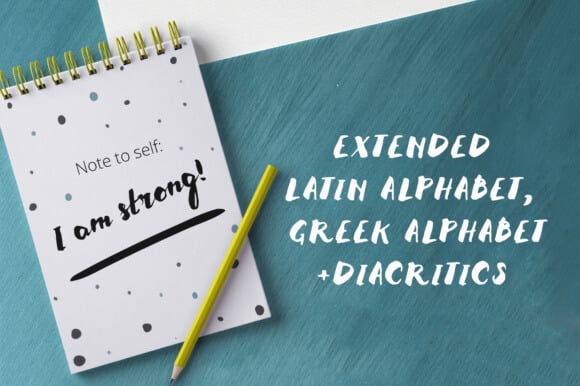 Note to self:
I am strong!
EXTENDED
LATIN ALPHABET,
GREEK ALPHABET
+DIACRITICS